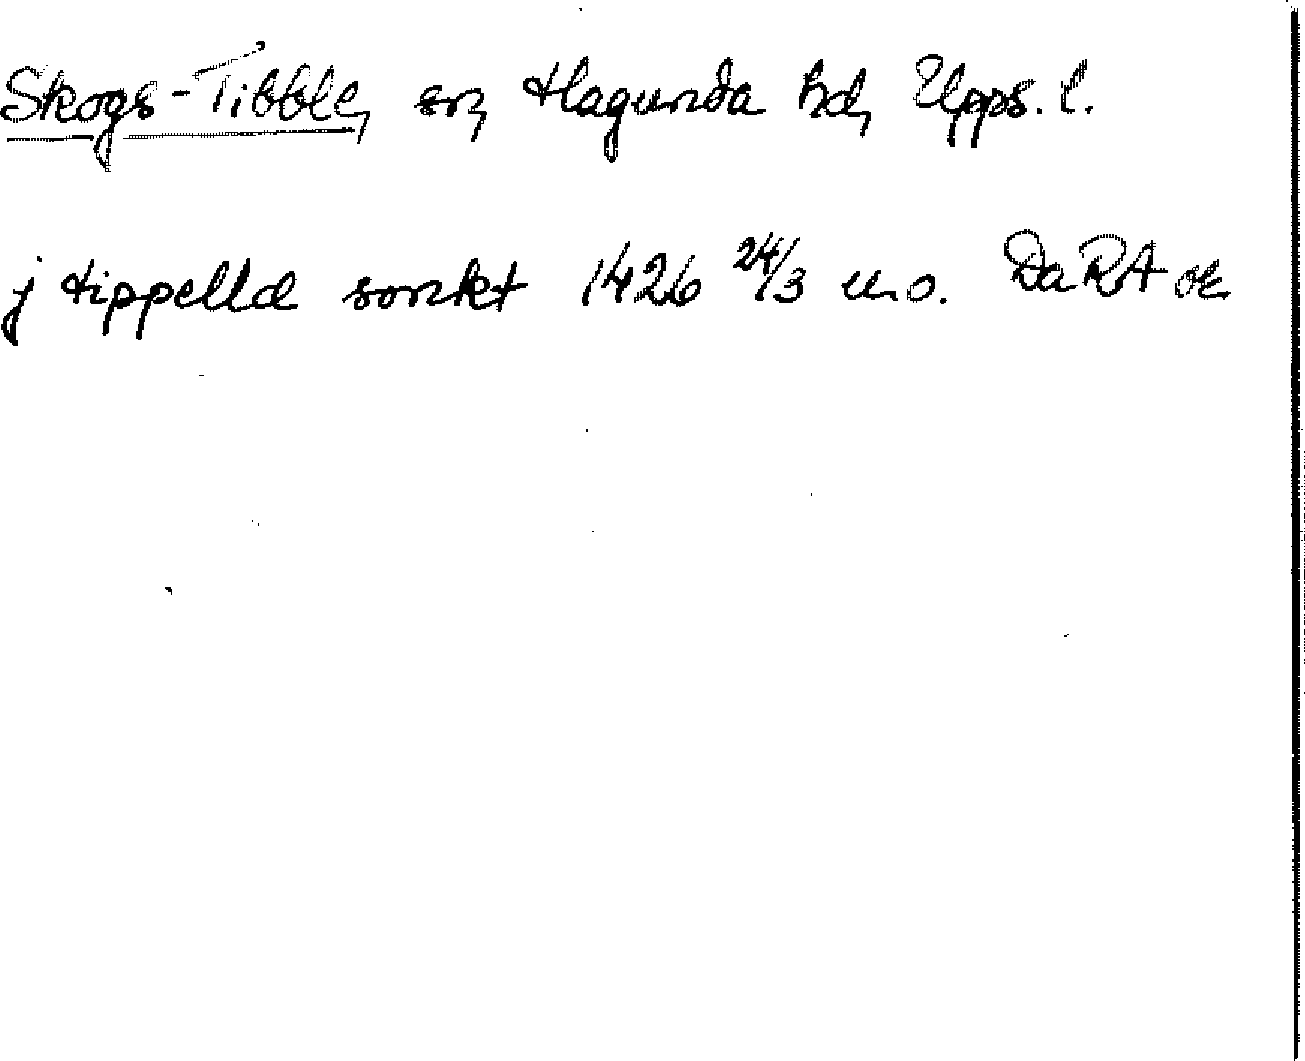 Skogs-Tibble, sn, Hagunda hd, Upps. l.
j tippelld sonkt 1426 24/3 u.o. DaRA or